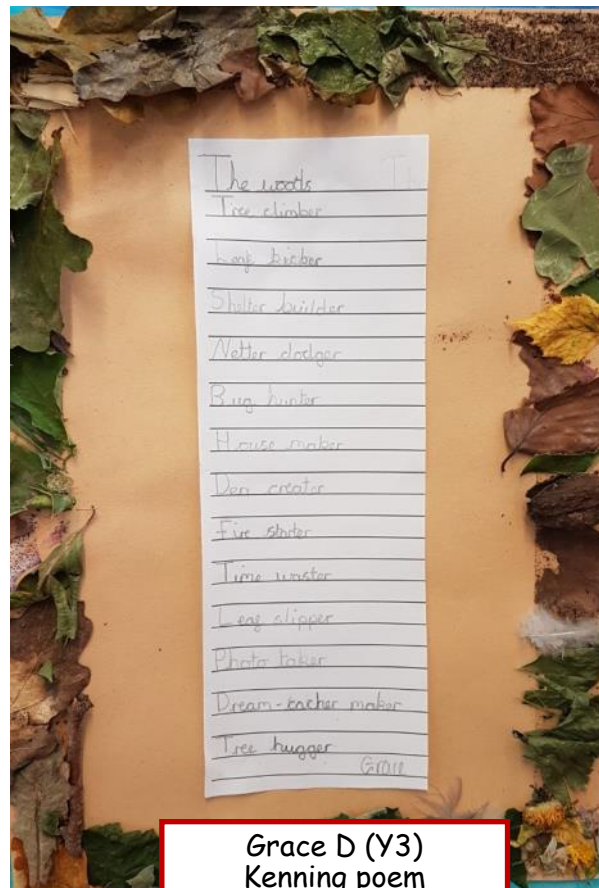 The woods
Tree climber
Leaf kicker
Shelter builder
Netter dodger
Bug hunter
House maker
Den creator
Fire starter
Time waster
Leag slipper
Photo taker
Dream-cacher maker
Tree hugger
Grace
Grace D (Y3)
Kenning poem